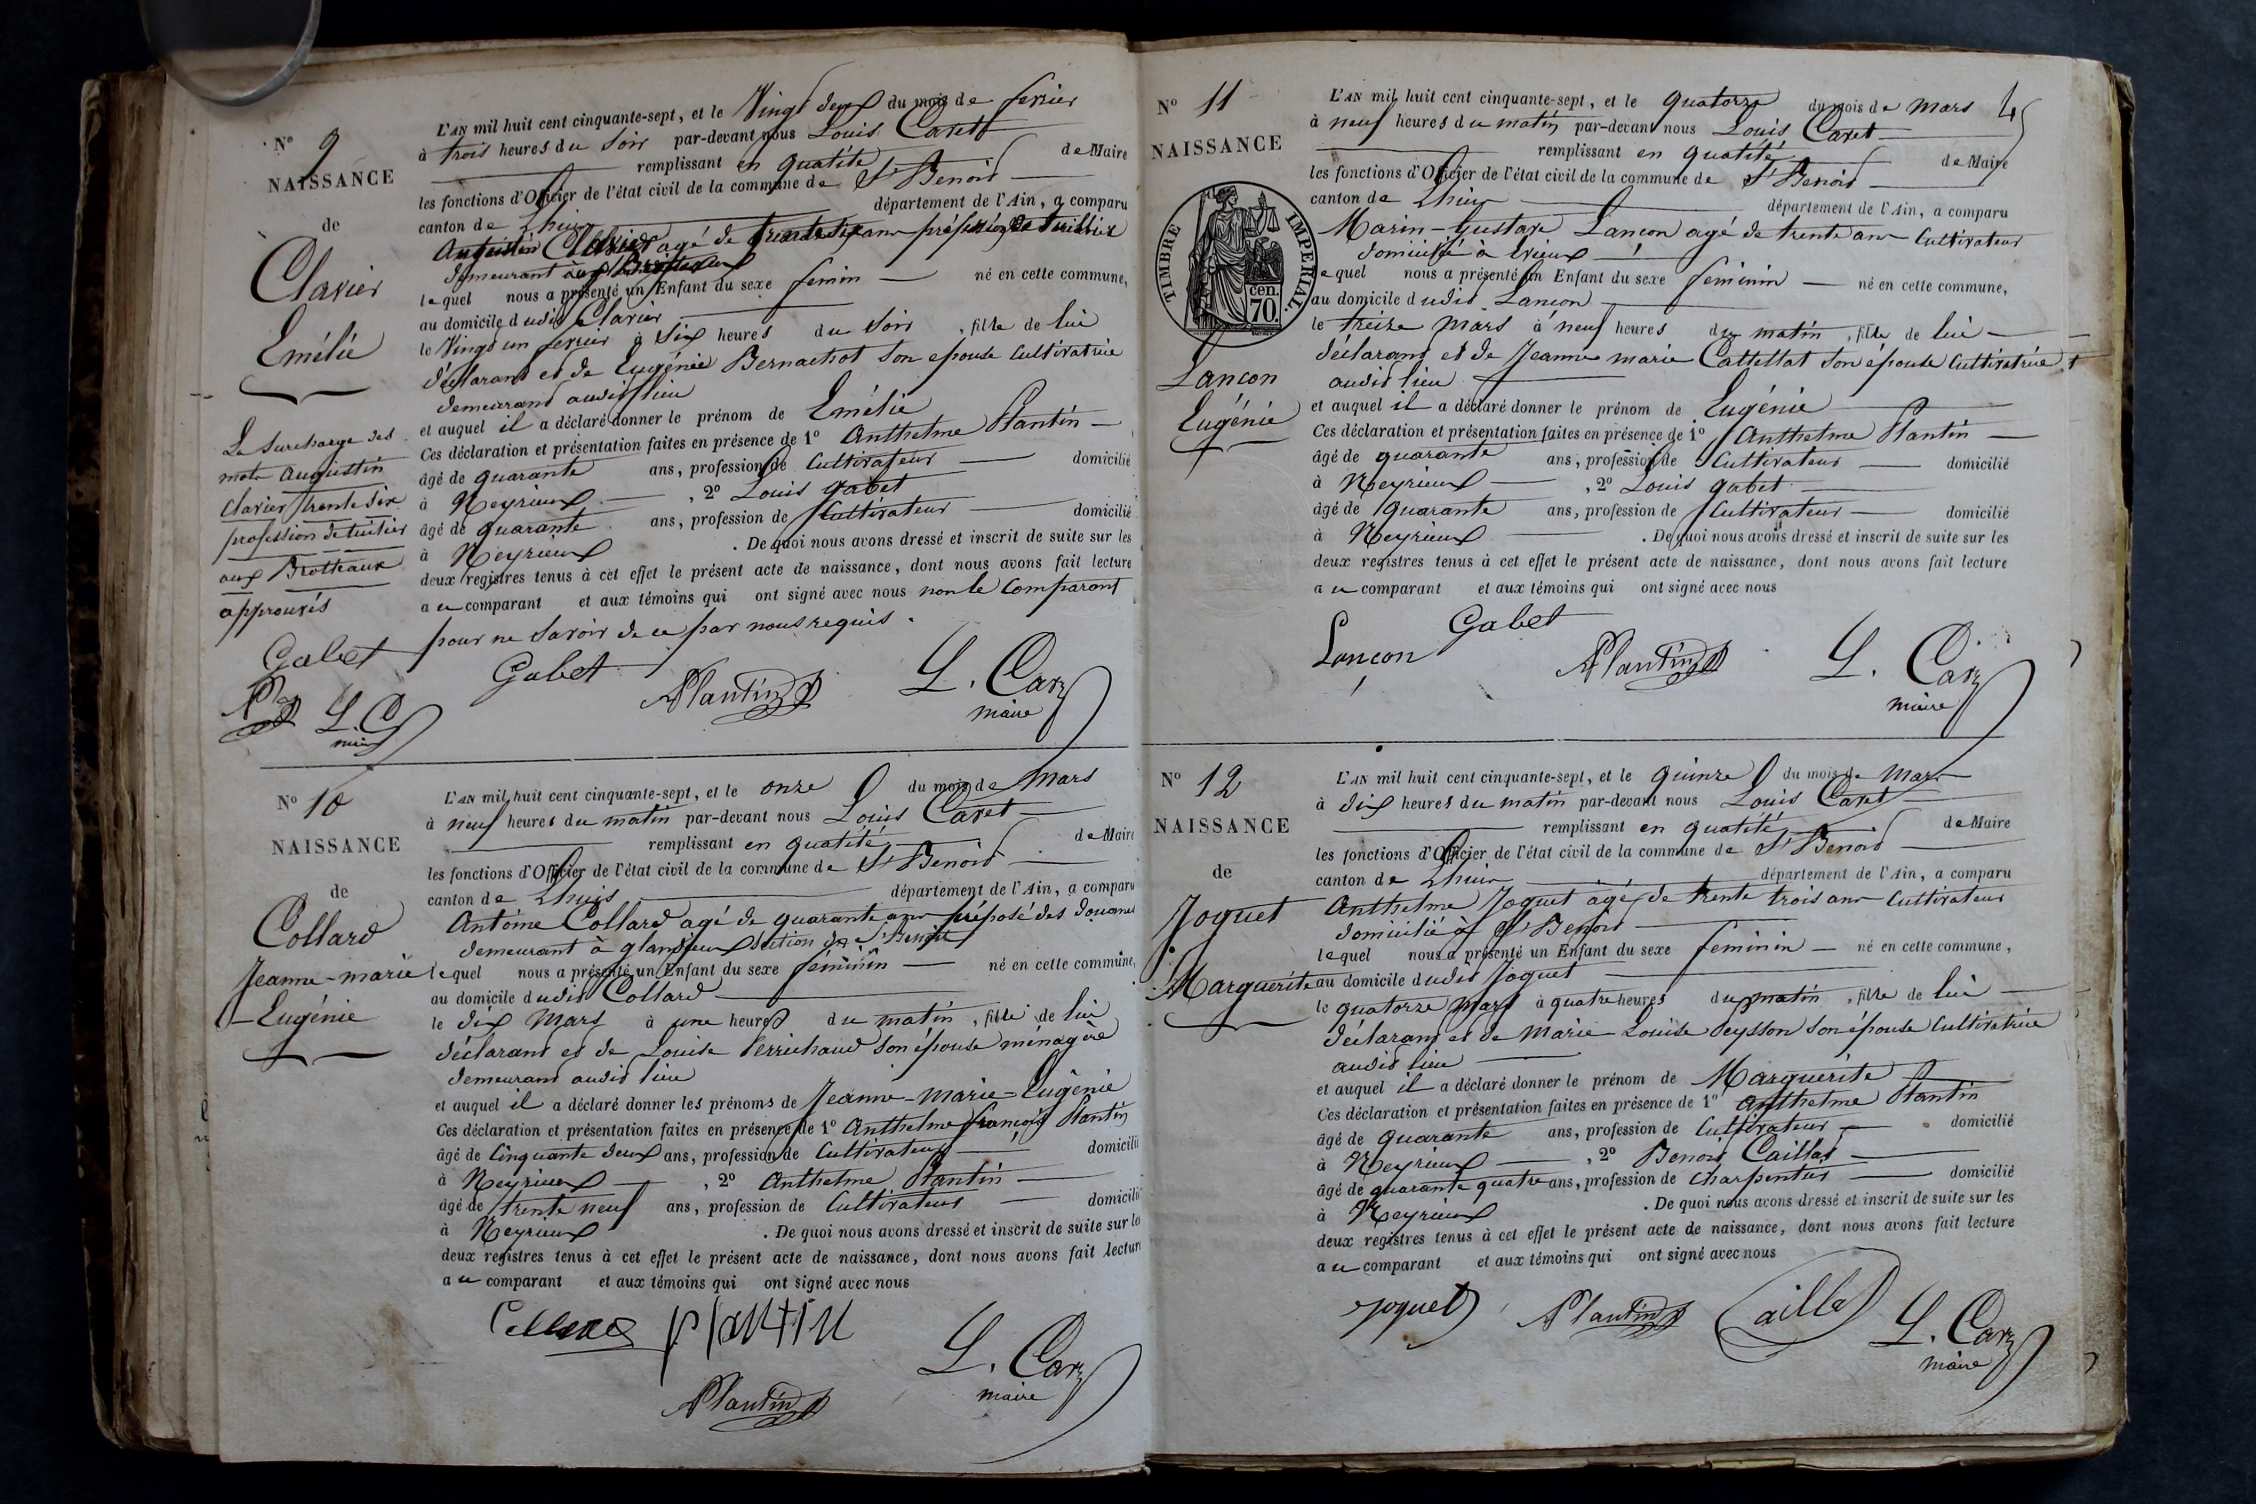 N° 9
NAISSANCE
de
Clavier
Emélie
La surcharge des
mots Augustin
Clavier trente six
profession de tuilier
aux Brotteaux
approuvés
Gabet
L. C
L'AN mil huit cent cinquante-sept, et le Vingt deux du mois de fevrier
à trois heures du soir par-devant nous Louis Caret
remplissant en qualité de Maire
les fonctions d'Officier de l'état civil de la commune de St Benoit
canton de Lhuis département de l'Ain, a comparu
Augustin Clavier agé de trente six ans profession de tuillier
demeurant aux Brotteaux
lequel nous a présenté un Enfant du sexe femin né en cette commune,
au domicile dudit Clavier
le Vingt un fevrier à six heures du soir , fille de lui
déclarant et de Eugénie Bernachot son epouse cultivatrice
demeurant audit lieu
et auquel il a déclaré donner le prénom de Emélie
Ces déclaration et présentation faites en présence de 1° Anthelme Plantin
âgé de quarante ans, profession de Cultivateur domicilié
à Neyrieux , 2° Louis gabet
âgé de quarante ans, profession de Cultivateur domicilié
à Neyrieux . De quoi nous avons dressé et inscrit de suite sur les
deux registres tenus à cet effet le présent acte de naissance, dont nous avons fait lecture
au comparant et aux témoins qui ont signé avec nous non le comparant
pour ne savoir de ce par nous requis.
Gabet
APlantin
L. Car
maire
N° 10
NAISSANCE
de
Collard
Jeanne-marie
-Eugénie
L'AN mil huit cent cinquante-sept, et le onze du mois de Mars
à neuf heures du matin par-devant nous Louis Caret
remplissant en qualité de Maire
les fonctions d'Officier de l'état civil de la commune de St Benoit
canton de Lhuis département de l'Ain, a comparu
Antoine Collard agé de quarante ans préposé des douanes
demeurant à glandieux section de St Benoit
lequel nous a présenté un Enfant du sexe féminin né en cette commune,
au domicile dudit Collard
le dix Mars à une heures du matin , fille de lui
déclarant et de Louise Perrichaud son épouse ménagère
demeurant audit lieu
et auquel il a déclaré donner les prénoms de Jeanne-Marie-Eugénie
Ces déclaration et présentation faites en présence de 1° Anthelme françois Plantin
âgé de Cinquante deux ans, profession de Cultivateur domicilié
à Neyrieux , 2° Anthelme Plantin
âgé de trente neuf ans, profession de Cultivateur domicilié
à Neyrieux . De quoi nous avons dressé et inscrit de suite sur les
deux registres tenus à cet effet le présent acte de naissance, dont nous avons fait lecture
au comparant et aux témoins qui ont signé avec nous
Collard plantin
APlantin
L. Car
maire
45
N° 11
NAISSANCE
TIMBRE IMPERIAL.
cen.
70.
Lançon
Eugénie
L'AN mil huit cent cinquante-sept, et le quatorze du mois de Mars
à neuf heures du matin par-devant nous Louis Caret
remplissant en qualité de Maire
les fonctions d'Officier de l'état civil de la commune de St Benoit
canton de Lhuis département de l'Ain, a comparu
Marin-Gustave Lançon agé de trente ans Cultivateur
domicilié à
lequel nous a présenté un Enfant du sexe feminin né en cette commune,
au domicile dudit Lançon
le treize mars à neuf heures du matin , fille de lui
déclarant et de Jeanne marie Cattellat son épouse Cultivatrice
audit lieu
et auquel il a déclaré donner le prénom de Eugénie
Ces déclaration et présentation faites en présence de 1° Anthelme Plantin
âgé de quarante ans, profession de Cultivateur domicilié
à Neyrieux , 2° Louis gabet
âgé de quarante ans, profession de Cultivateur domicilié
à Neyrieux . De quoi nous avons dressé et inscrit de suite sur les
deux registres tenus à cet effet le présent acte de naissance, dont nous avons fait lecture
au comparant et aux témoins qui ont signé avec nous
Lançon Gabet
APlantin
L. Car
maire
N° 12
NAISSANCE
de
Joguet
Marguerite
L'AN mil huit cent cinquante-sept, et le quinze du mois de Mars
à dix heures du matin par-devant nous Louis Caret
remplissant en qualité de Maire
les fonctions d'Officier de l'état civil de la commune de St Benoit
canton de Lhuis département de l'Ain, a comparu
Anthelme Joguet agé de trente trois ans Cultivateur
domicilié à St Benoit
lequel nous a présenté un Enfant du sexe feminin né en cette commune,
au domicile dudit Joguet
le quatorze Mars à quatre heures du matin , fille de lui
déclarant et de Marie Louise Peysson son épouse Cultivatrice
audit lieu
et auquel il a déclaré donner le prénom de Marguerite
Ces déclaration et présentation faites en présence de 1° Anthelme Plantin
âgé de quarante ans, profession de Cultivateur domicilié
à Neyrieux , 2° Benoit Caillat
âgé de quarante quatre ans, profession de Charpentier domicilié
à Neyrieux . De quoi nous avons dressé et inscrit de suite sur les
deux registres tenus à cet effet le présent acte de naissance, dont nous avons fait lecture
au comparant et aux témoins qui ont signé avec nous
joguet APlantin Caillat
L. Car
maire